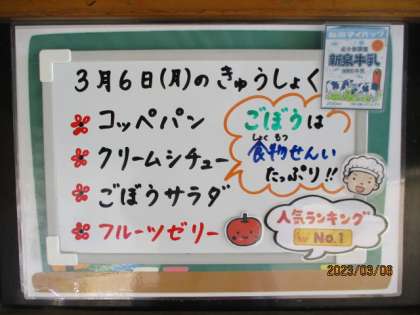 3月6日(月)のきゅうしょく
コッペパン
クリームシチュー
ごぼうサラダ
フルーツゼリー
ごぼうは
しょく もつ
食物せんい
たっぷり!!
人気ランキング
No.1
新泉牛乳
2023/03/06